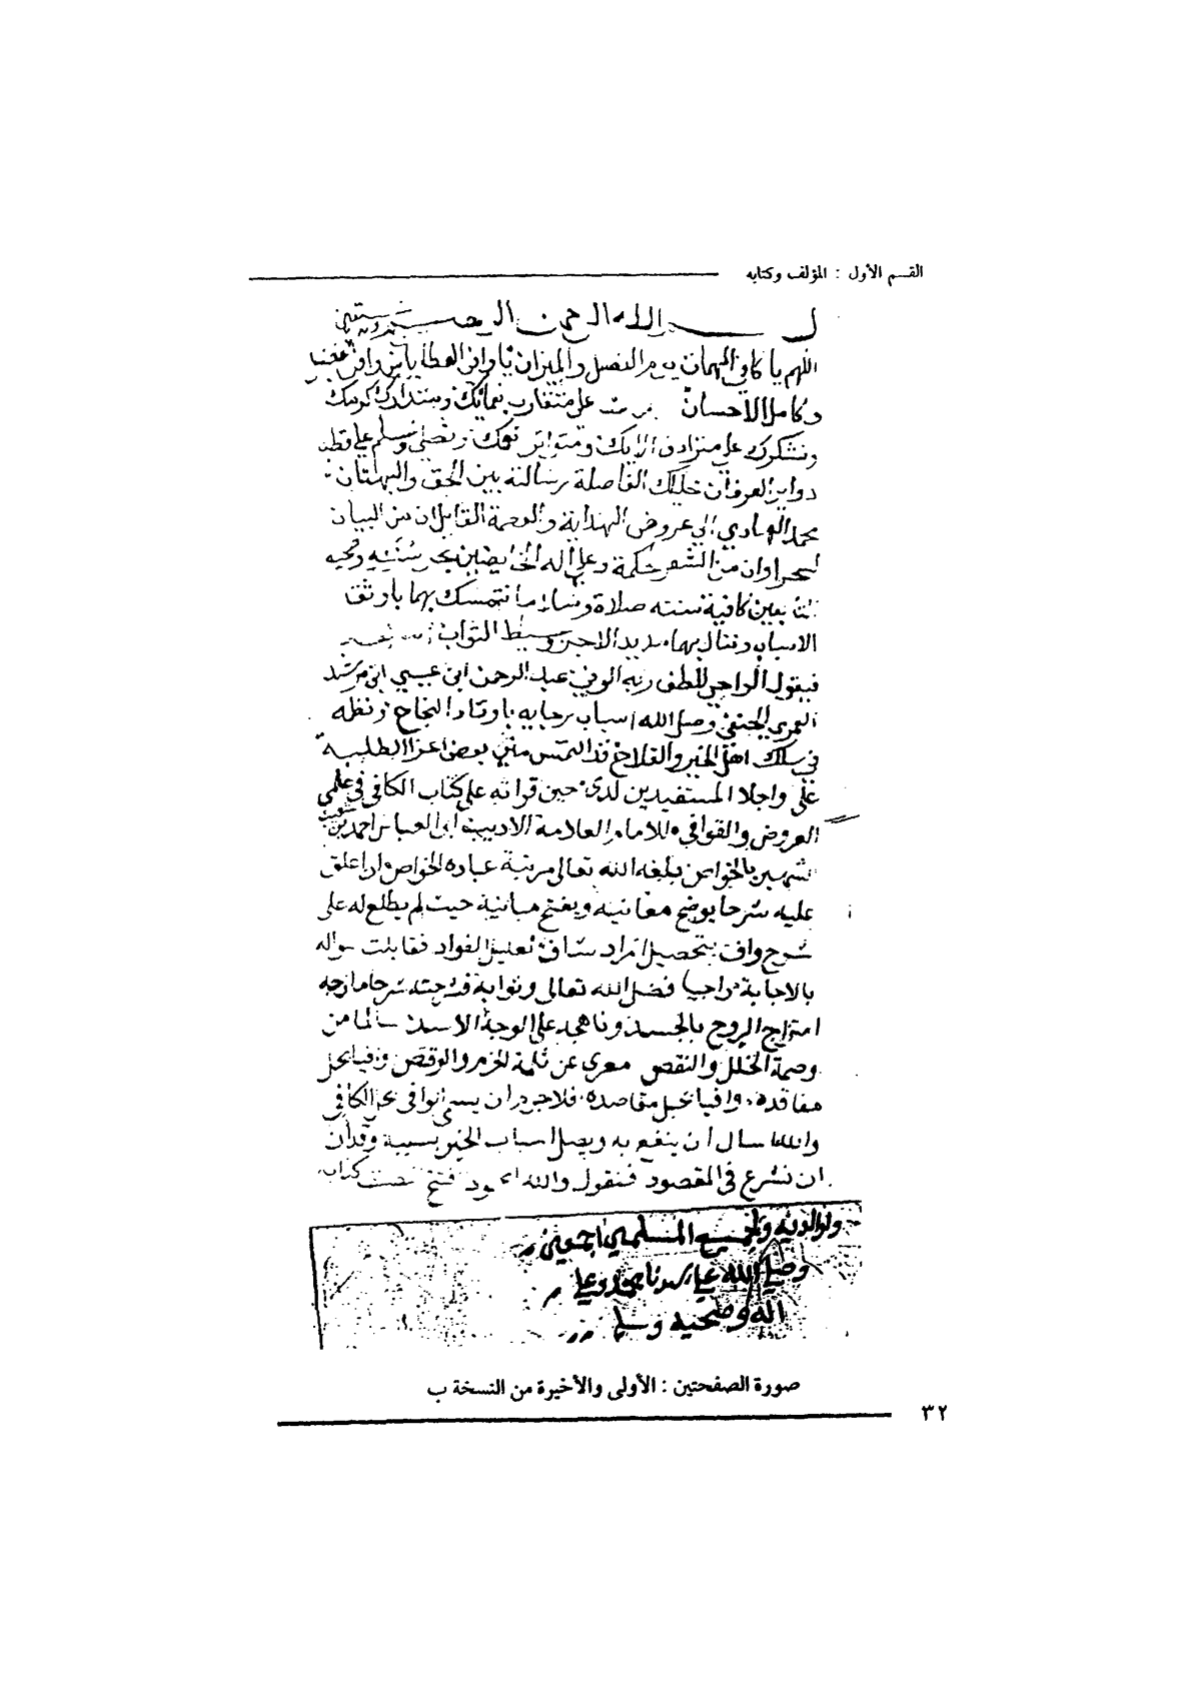 القسم الأول : المؤلف وكتابه
بسم الله الرحمن الرحيم وبه نستعين
اللهم يا كافي المهمات يوم الفصل والميزان يا وافي العطايا
وكامل الاحسان على متقارب نعمائك ومتدارك كرمك
ونشكرك على مترادف الايك ومتواتر نعمك ونصلي ونسلم على قطب
دواير العرفان خليلك الفاصلة رسالته بين الحق والبهتان
محمد الهادي الي عروض الهداية والعصمة القايل ان من البيان
لسحرا وان من الشعر حكمة وعلى اله الخايضين بحر سنته وصحبه
التابعين كافية سنته صلاة وسلاما نتمسك بهما باوثق
الاسباب وننال بهما مديد الاجر وبسيط الثواب
فيقول الراجي للطف ربه الوفي عبد الرحمن ابن عيسي ابن مرشد
العمري الحنفي وصل الله اسباب رجايه باوتاد النجاح ونظمه
في سلك اهل الخير والفلاح قد التمس مني بعض اعزا الطلبة
على واجلا المستفيدين لدي حين قراته على كتاب الكافي في علمي
العروض والقوافي للامام العلامة الاديب ابي العباس احمد بن شعيب
الشهير بالخواص بلغه الله تعالى مرتبة عباده الخواص ان اعلق
عليه شرحا يوضح معانيه ويفتح مبانية حيث لم يطلع له على
شرح واف بتحصيل المراد شاف تعليل الفواد فقابلت سواله
بالاجابة راجيا فضل الله تعالى وثوابه فشرحته شرحا مازجه
امتزاج الروح بالجسد وناهجه على الوجه الاسد سالما من
وصمة الخلل والنقص معري عن ثلمة الخرم والوقص وفيا بحل
معاقده وافيا بنيل مقاصده فلا جرم ان يسمى الوافي بحل الكافي
والله اسال ان ينفع به ويصل اسباب الخير بسببه وقد آن
ان نشرع في المقصود فنقول والله المحمود
ولوالديه ولجميع المسلمين اجمعين
وصلي الله على سيدنا محمد وعلى
اله وصحبه وسلم
صورة الصفحتين : الأولى والأخيرة من النسخة ب
٣٢